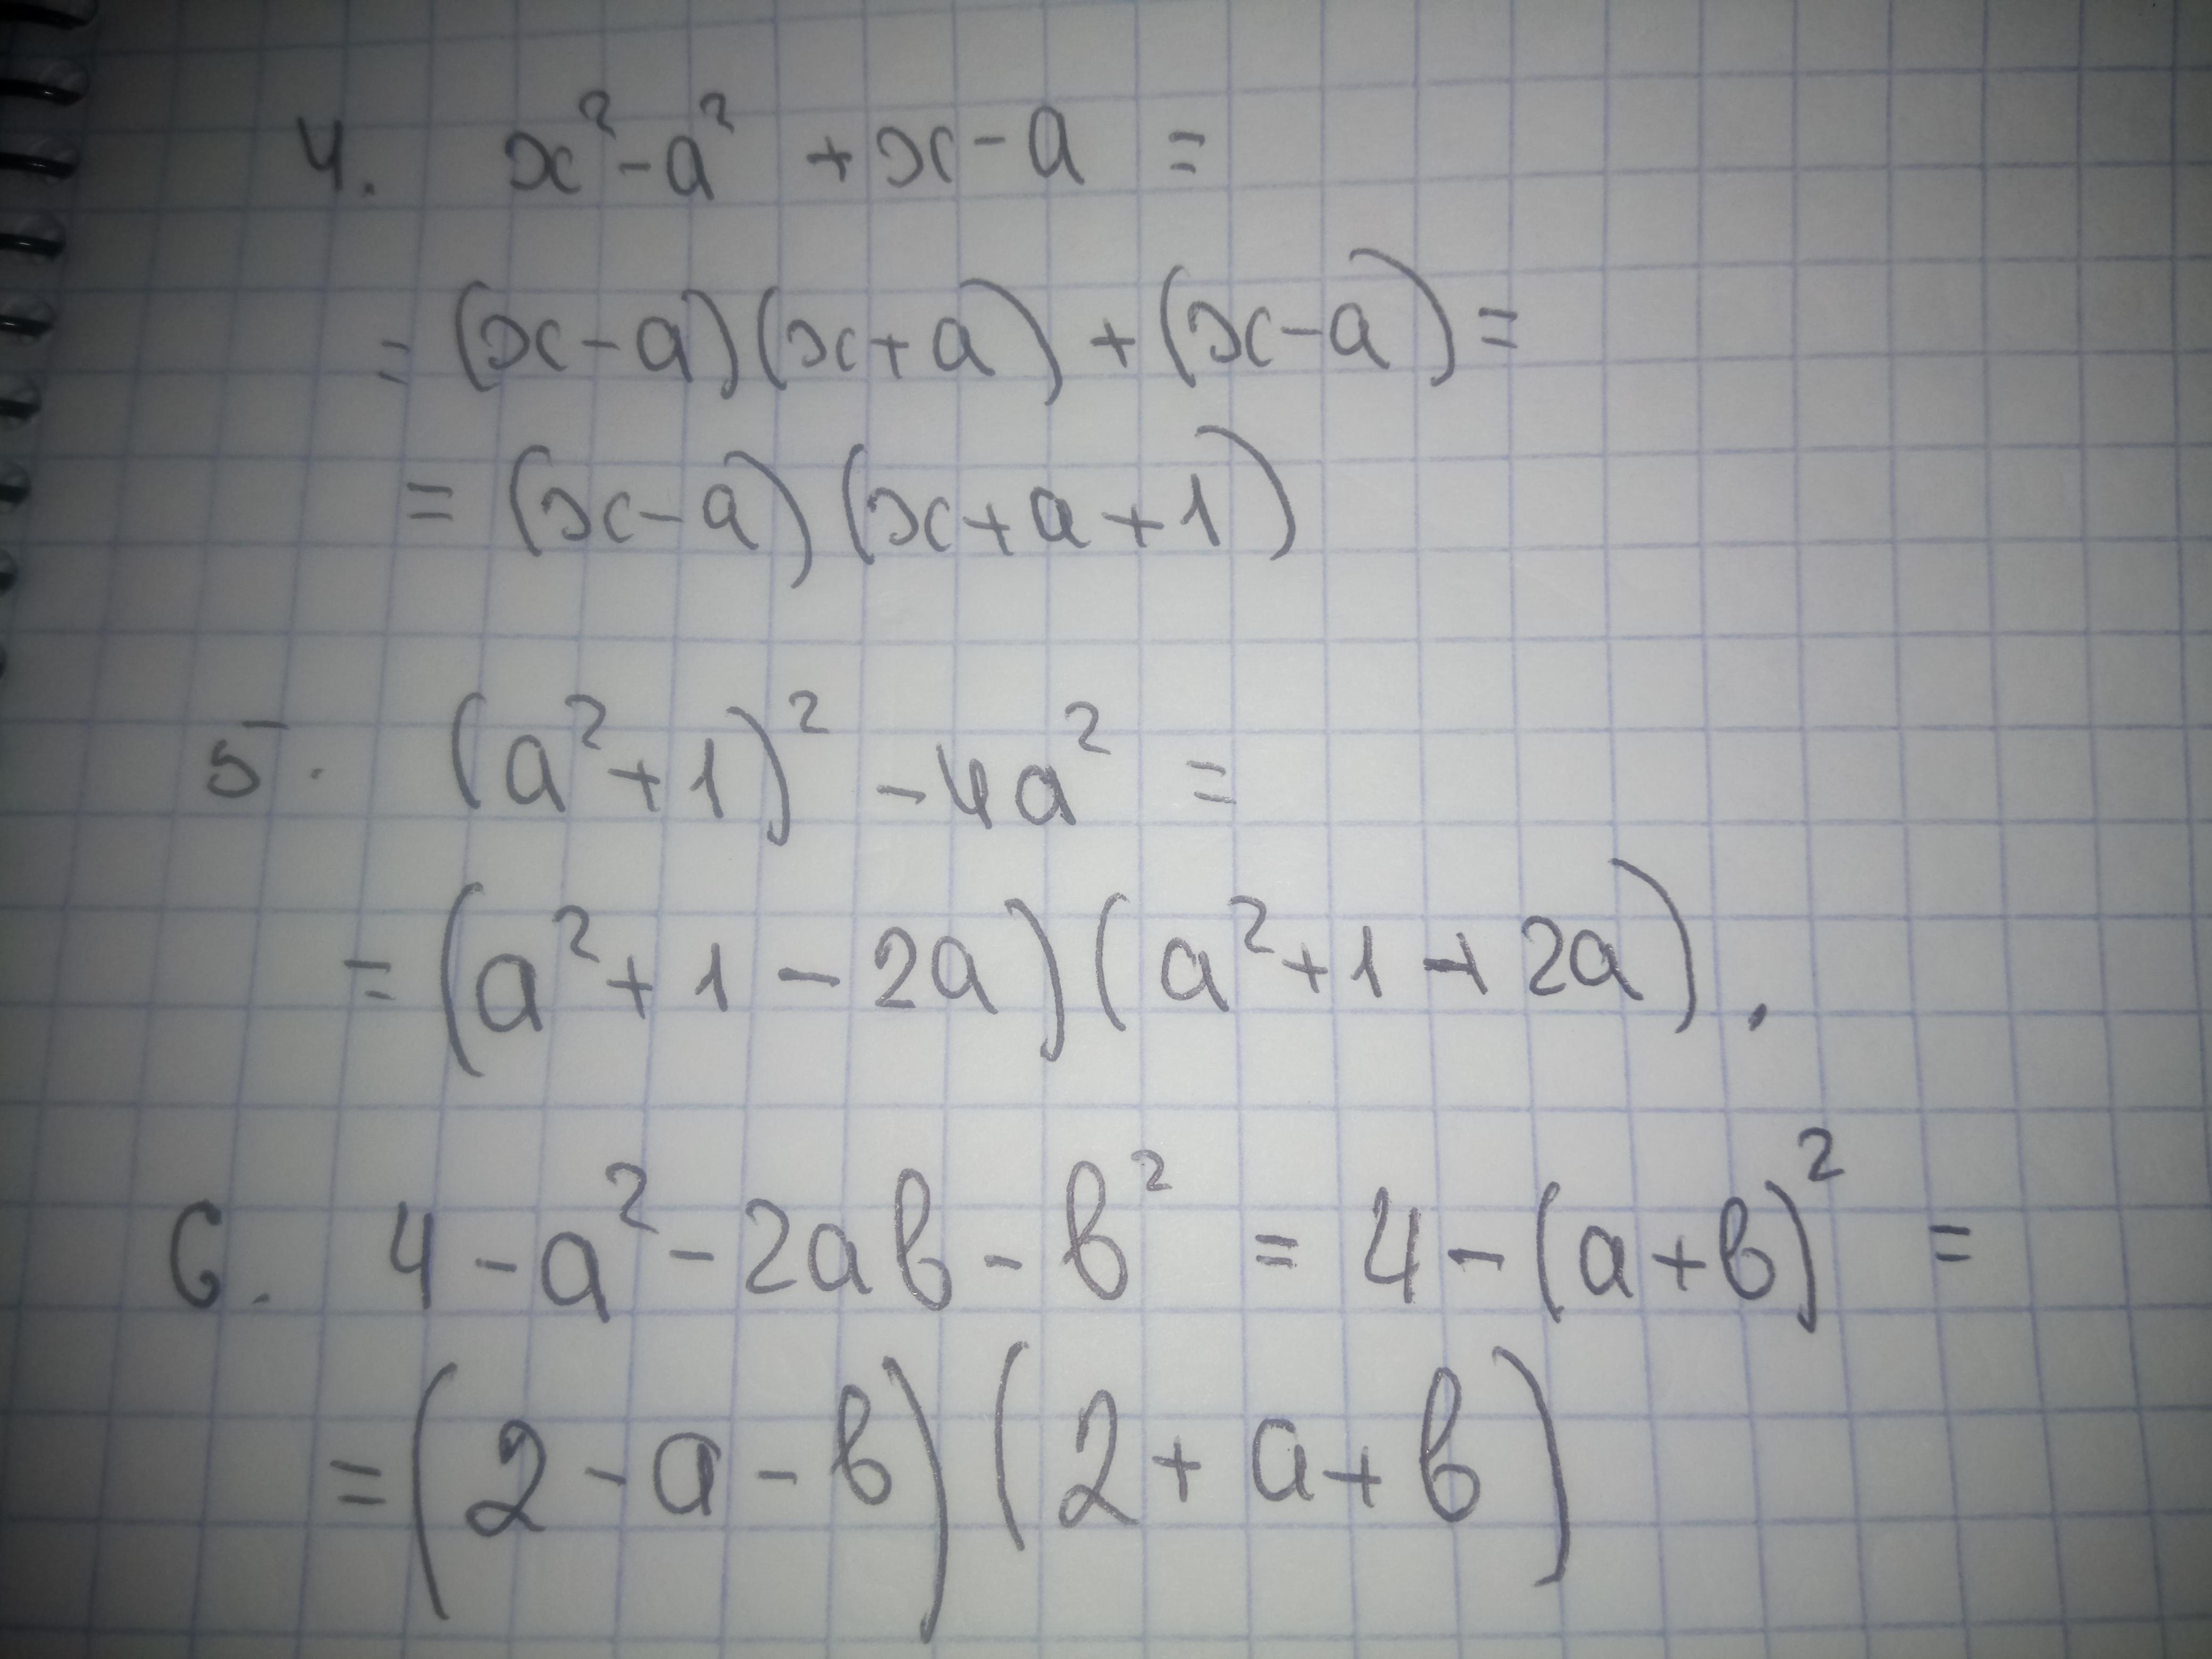 4. x² - a² + x - a =
= (x - a)(x + a) + (x - a) =
= (x - a)(x + a + 1)
5. (a² + 1)² - 4a² =
= (a² + 1 - 2a)(a² + 1 + 2a).
6. 4 - a² - 2ab - b² = 4 - (a + b)² =
= (2 - a - b)(2 + a + b)